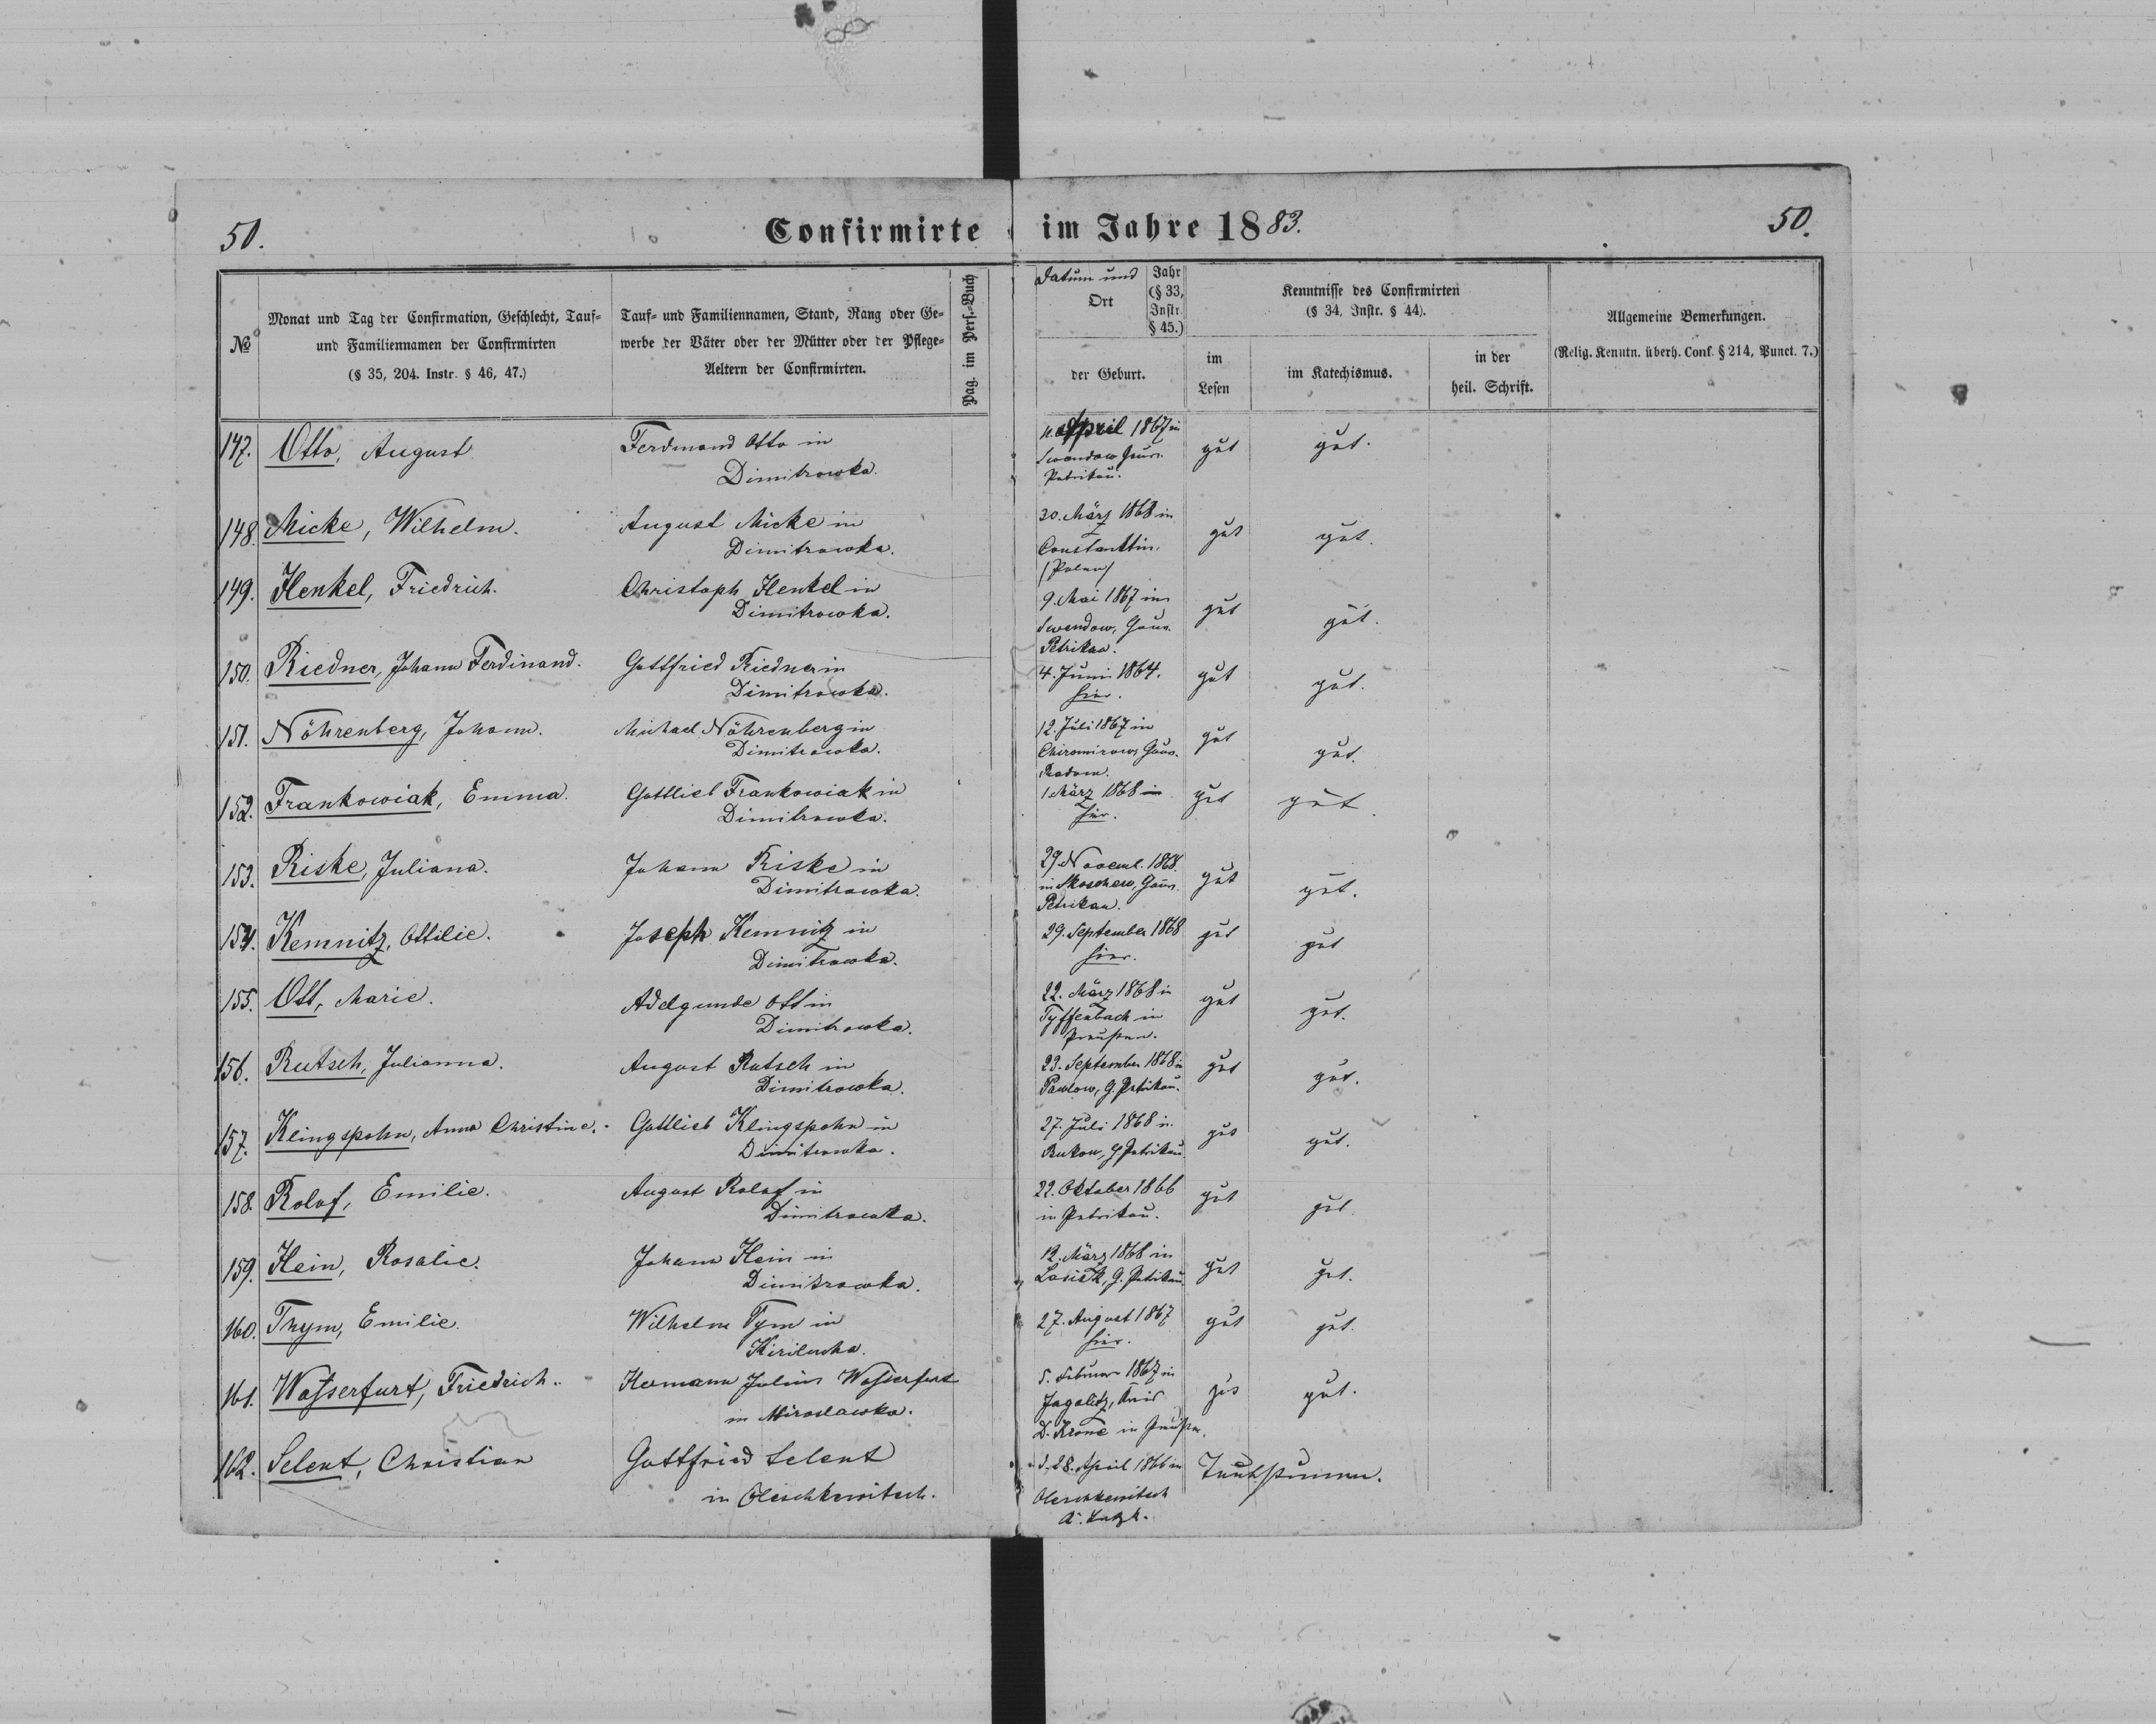 50.
Confirmirte im Jahre 1883.
50.
№
Monat und Tag der Confirmation, Geschlecht, Tauf-
und Familiennamen der Confirmirten
(§ 35, 204. Instr. § 46, 47.)
Tauf- und Familiennamen, Stand, Rang oder Ge-
werbe der Väter oder der Mütter oder der Pflege-
Aeltern der Confirmirten.
Pag. im Pers.-Buch
Datum und
Ort
Jahr
(§ 33,
Instr.
§ 45.)
der Geburt.
Kenntnisse des Confirmirten
(§ 34, Instr. § 44).
im
Lesen
im Katechismus.
in der
heil. Schrift.
Allgemeine Bemerkungen.
(Relig. Kenntn. überh. Conf. § 214, Punct. 7.)
147. Otto, August Ferdinand Otto in
Dimitrowka.
April 1867 in
Petrikau.
gut gut.
148. Micke, Wilhelm. August Micke in
Dimitrowka.
30. März 1868 in
Constanttin.
/Polen/
gut gut.
149. Henkel, Friedrich. Christoph Henkel in
Dimitrowka.
9. Mai 1867 in
Swendow, Gouv.
Petrikau.
gut gut.
150. Riedner, Johann Ferdinand. Gottfried Riedner in
Dimitrowka.
4. Juni 1864.
hier.
gut gut.
151. Nöhrenberg, Johann. Michael Nöhrenberg in
Dimitrowka.
12. Juli 1867 in
Chiromirow, Gouv.
Radom.
gut gut.
152. Frankowiak, Emma. Gottlieb Frankowiak in
Dimitrowka.
1 März 1868 in
hier.
gut gut.
153. Riske, Juliana. Johann Riske in
Dimitrowka.
29. Novemb. 1868.
in Skoschew, Gouv.
Petrikau.
gut gut.
154. Kemnitz, Ottilie. Joseph Kemnitz in
Dimitrowka.
29. September 1868
hier.
gut gut
155. Ott, Marie. Adelgunde Ott in
Dimitrowka.
22. März 1868 in
Tyffenbach in
Preußen.
gut gut.
156. Rutsch, Julianna. August Rutsch in
Dimitrowka.
23. September 1868 in
Pawlow, G. Petrikau.
gut gut.
157. Klingspohn, Anna Christine. Gottlieb Klingspohn in
Dimitrowka.
27. Juli 1868 in
Bukow, G Petrikau.
gut gut.
158. Rolof, Emilie. August Rolof in
Dimitrowka.
22. Oktober 1866
in Petrikau.
gut gut.
159. Hein, Rosalie. Johann Hein in
Dimitrowka.
12. März 1868 in
G. Petrikau.
gut gut.
160. Thym, Emilie. Wilhelm Tym in
Kirilowka.
27. August 1867
hier.
gut gut.
161. Wasserfurt, Friedrich. Hermann Julius Wasserfurt
in Miroslawka.
5. Februar 1867 in
Jagolitz, Kreis
D. Krone in Preußen.
gut gut.
162. Selent, Christian Gottfried Selent
in Oleschkewitsch.
d. 28. April 1866 in
Oleschkewitsch
Taubstumm.